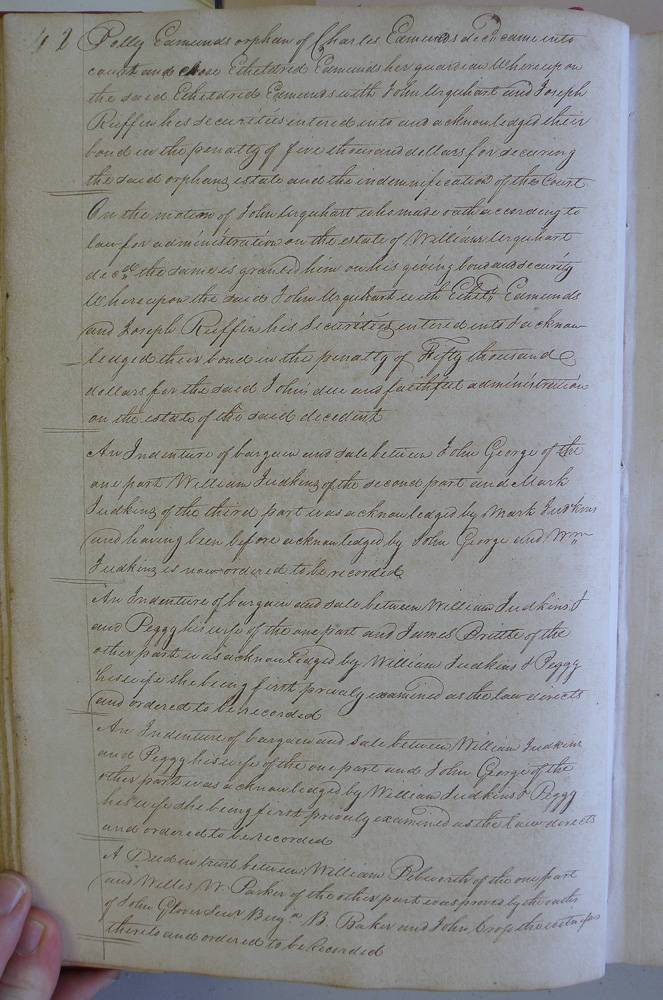 42 Polly Edmunds orphan of Charles Edmunds decd came into
court and chose Etheldred Edmunds her guardian Whereupon
the said Etheldred Edmunds with John Urquhart and Joseph
Ruffin his securities entered into and acknowledged their
bond in the penalty of five thousand dollars for securing
the said orphans estate and the indemnification of the Court
On the motion of John Urquhart who made oath according to
law for administration on the estate of William Urquhart
decd. the same is granted him on his giving bond and security
Whereupon the said John Urquhart with Etheld. Edmunds
and Joseph Ruffin his Securities entered into & acknow
ledged their bond in the penalty of Fifty thousand
dollars for the said John's due and faithful administration
on the estate of the said decedent
An Indenture of bargain and sale between John George of the
one part William Judkins of the second part and Mark
Judkins of the third part was acknowledged by Mark Judkins
and having been before acknowledged by John George and Wm.
Judkins is now ordered to be recorded
An Indenture of bargain and sale between William Judkins
and Peggy his wife of the one part and James Brittle of the
other part was acknowledged by William Judkins & Peggy
his wife she being first privily examined as the law directs
and ordered to be recorded
An Indenture of bargain and sale between William Judkins
and Peggy his wife of the one part and John George of the
other part was acknowledged by William Judkins & Peggy
his wife she being first privily examined as the law directs
and ordered to be recorded
A Deed in trust between William Pebworth of the one part
and Willis W. Parker of the other part was proved by the oaths
of John Glover Senr Benja. B. Baker and John the witnesses
thereto and ordered to be Recorded